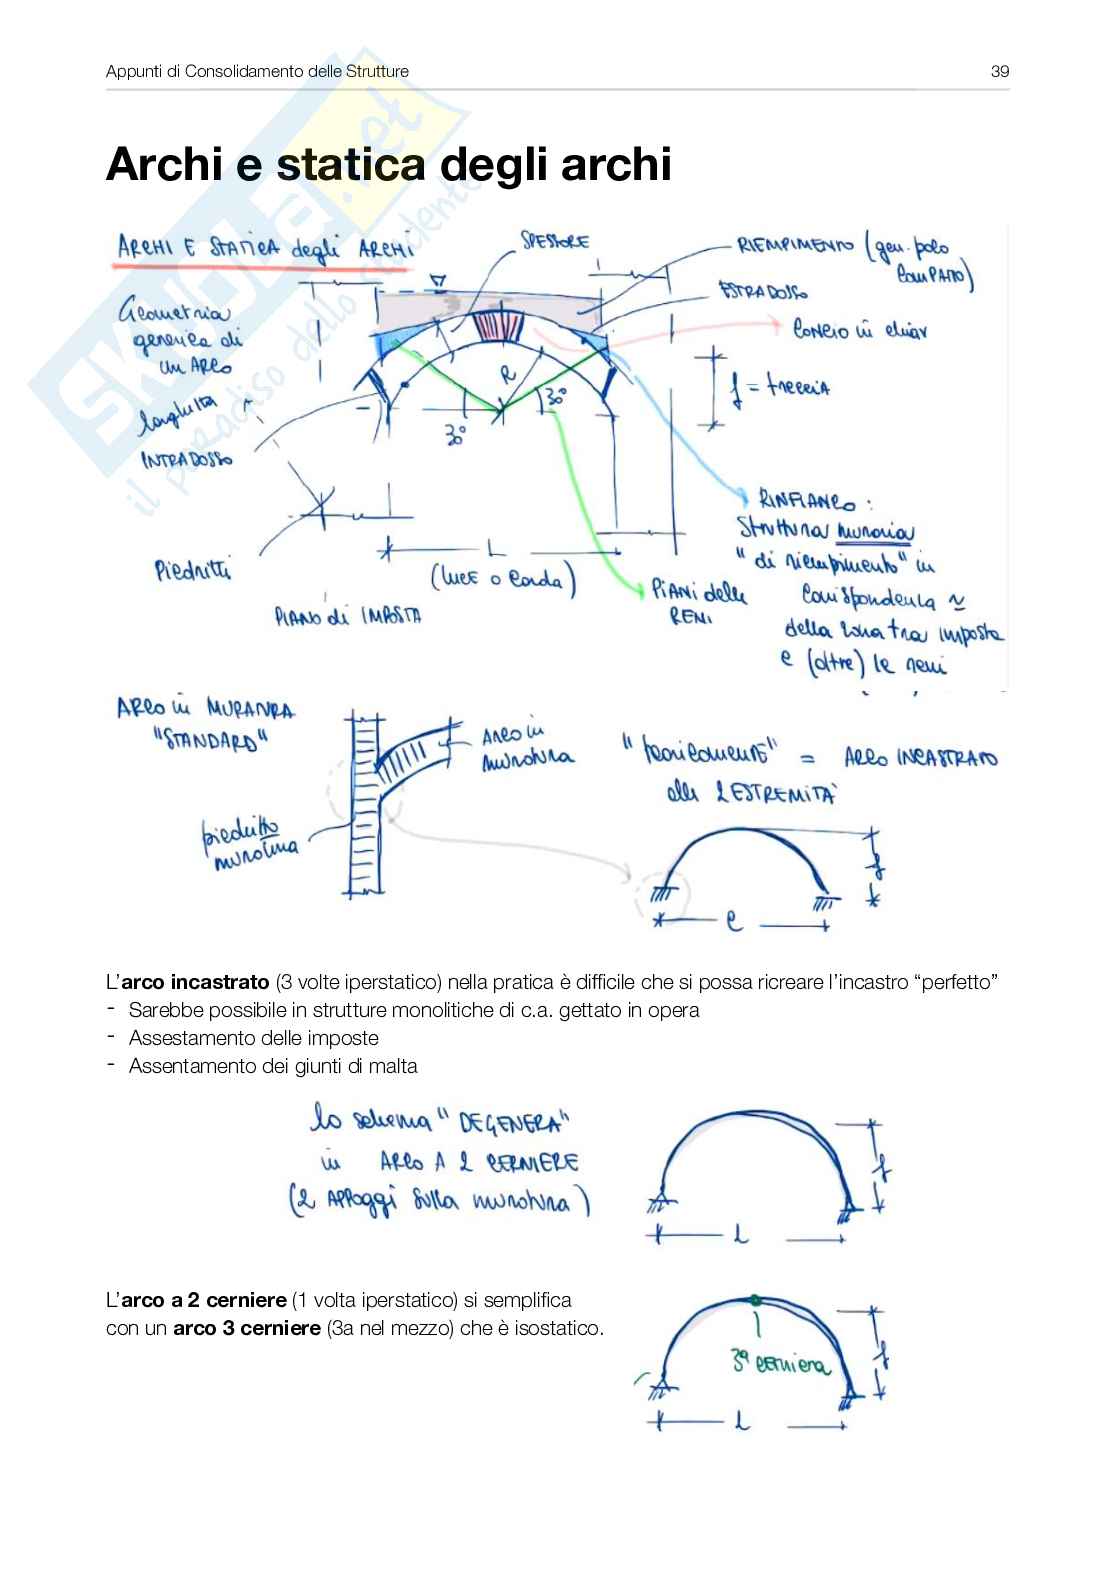 Appunti di Consolidamento delle Strutture 39
Archi e statica degli archi
ARCHI E STATICA degli ARCHI
SPESSORE
RIEMPIMENTO (gen. poco
COMPATTO)
ESTRADOSSO
CONCIO in chiav
Geometria
generica di
un ARCO
larghezza
INTRADOSSO
R
30°
30°
f = freccia
Piedritti
L
(luce o corda)
PIANO di IMPOSTA
PIANI delle
RENI
RINFIANCO :
Struttura muraria
"di riempimento" in
corrispondenza ~
della zona tra imposta
e (oltre) le reni
ARCO in MURATURA
"STANDARD"
ARCO in
muratura
piedritto
muratura
"teoricamente" = ARCO INCASTRATO
alle 2 ESTREMITÀ
f
l
L'arco incastrato (3 volte iperstatico) nella pratica è difficile che si possa ricreare l'incastro “perfetto”
- Sarebbe possibile in strutture monolitiche di c.a. gettato in opera
- Assestamento delle imposte
- Assentamento dei giunti di malta
lo schema "DEGENERA"
in ARCO A 2 CERNIERE
(2 APPoggi sulla muratura)
f
L
L'arco a 2 cerniere (1 volta iperstatico) si semplifica
con un arco 3 cerniere (3a nel mezzo) che è isostatico.
3ª cerniera
f
L
SKUOLA.net
il paradiso dello studente